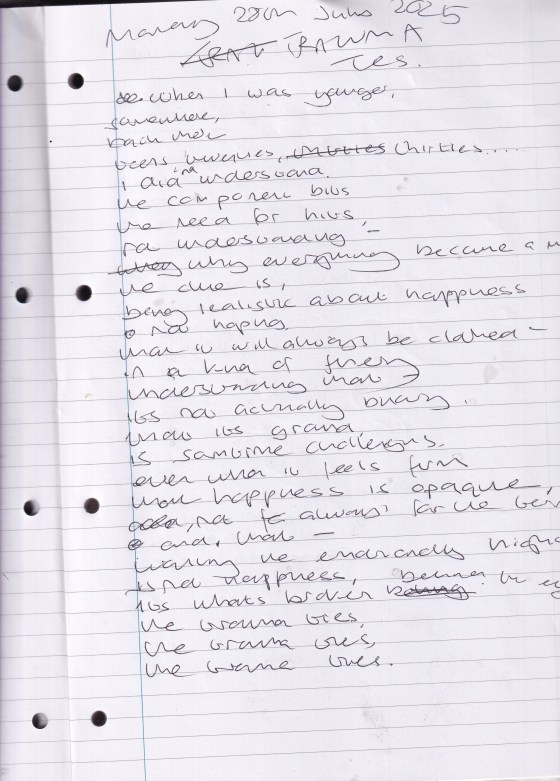 Monday 28th July 2025
TRAUMA
Ties.
when I was younger,
somewhere,
back then
teens twenties, thirties thirties....
I did not understand.
the component bits
the need for hints,
not understanding -
why everything became a
the clue is,
being realistic about happiness
not hoping
that it will always be clothed -
in a kind of finery
understanding that
its not actually binary.
that its ground
is sometime challenging.
even when it feels firm
that happiness is opaque,
not always for the
and, that -
wearing the
is not happiness,
its whats broken
the trauma ties,
the trauma ties,
the trauma ties.